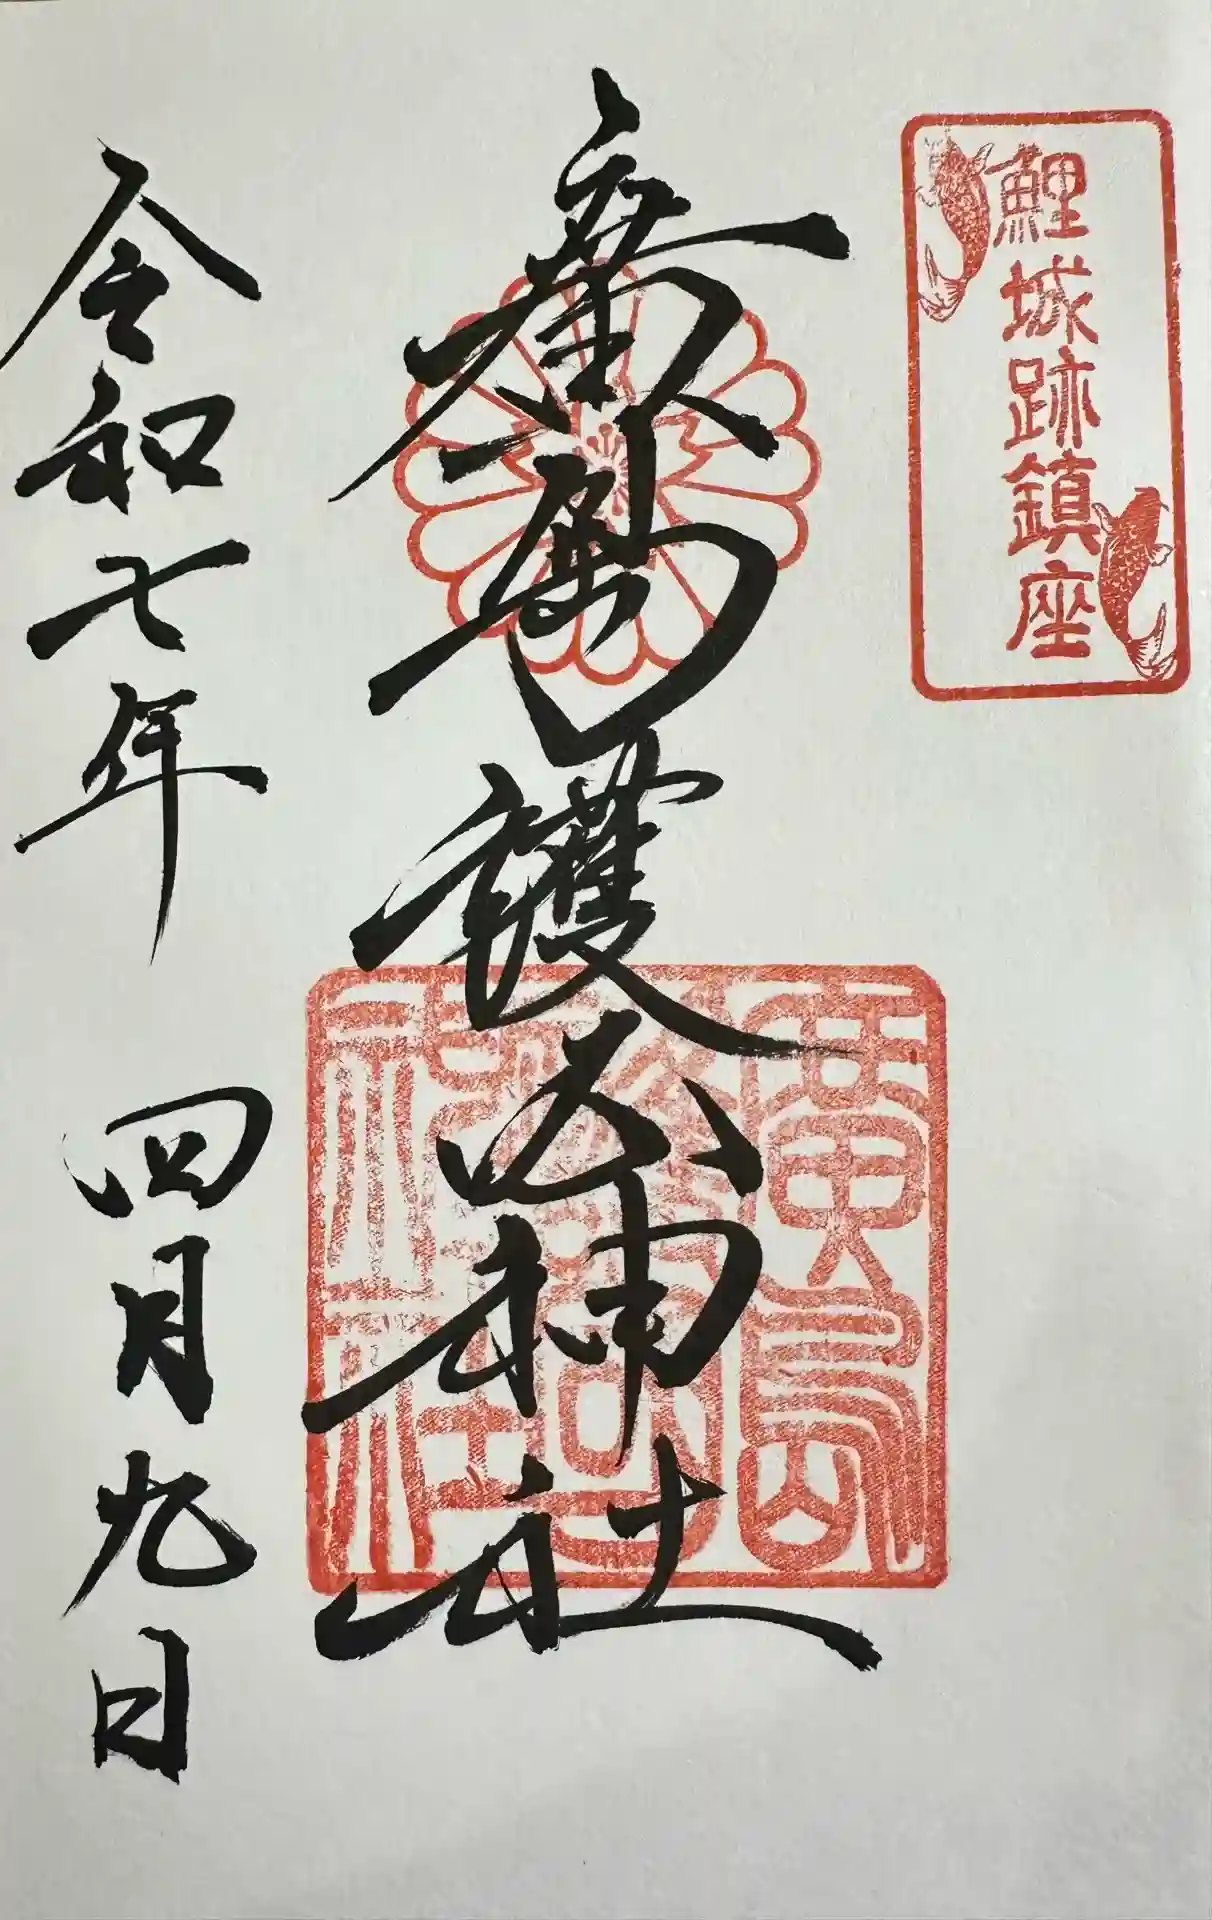 鯉城跡鎮座
廣島護國神社
廣島護國神社
令和七年 四月九日